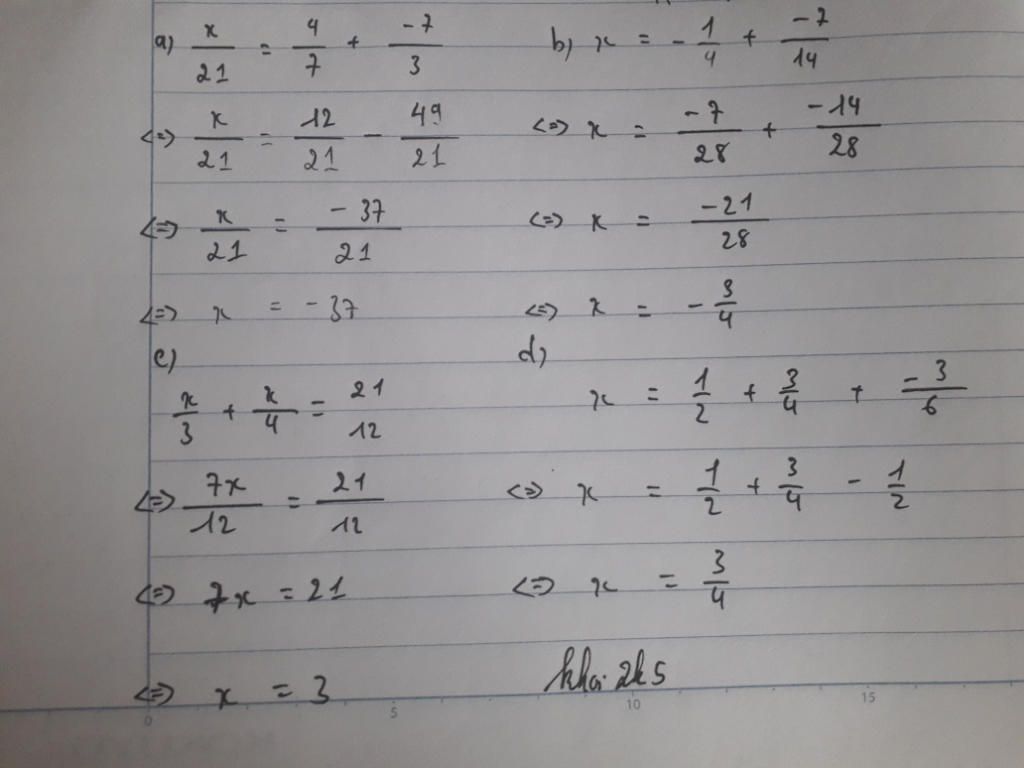 a) x/21 = 4/7 + -7/3
<=> x/21 = 12/21 - 49/21
<=> x/21 = -37/21
<=> x = -37
b) x = -1/4 + -7/14
<=> x = -7/28 + -14/28
<=> x = -21/28
<=> x = -3/4
c)
x/3 + x/4 = 21/12
<=> 7x/12 = 21/12
<=> 7x = 21
<=> x = 3
d)
x = 1/2 + 3/4 + -3/6
<=> x = 1/2 + 3/4 - 1/2
<=> x = 3/4
khai 2k5
0 5 10 15